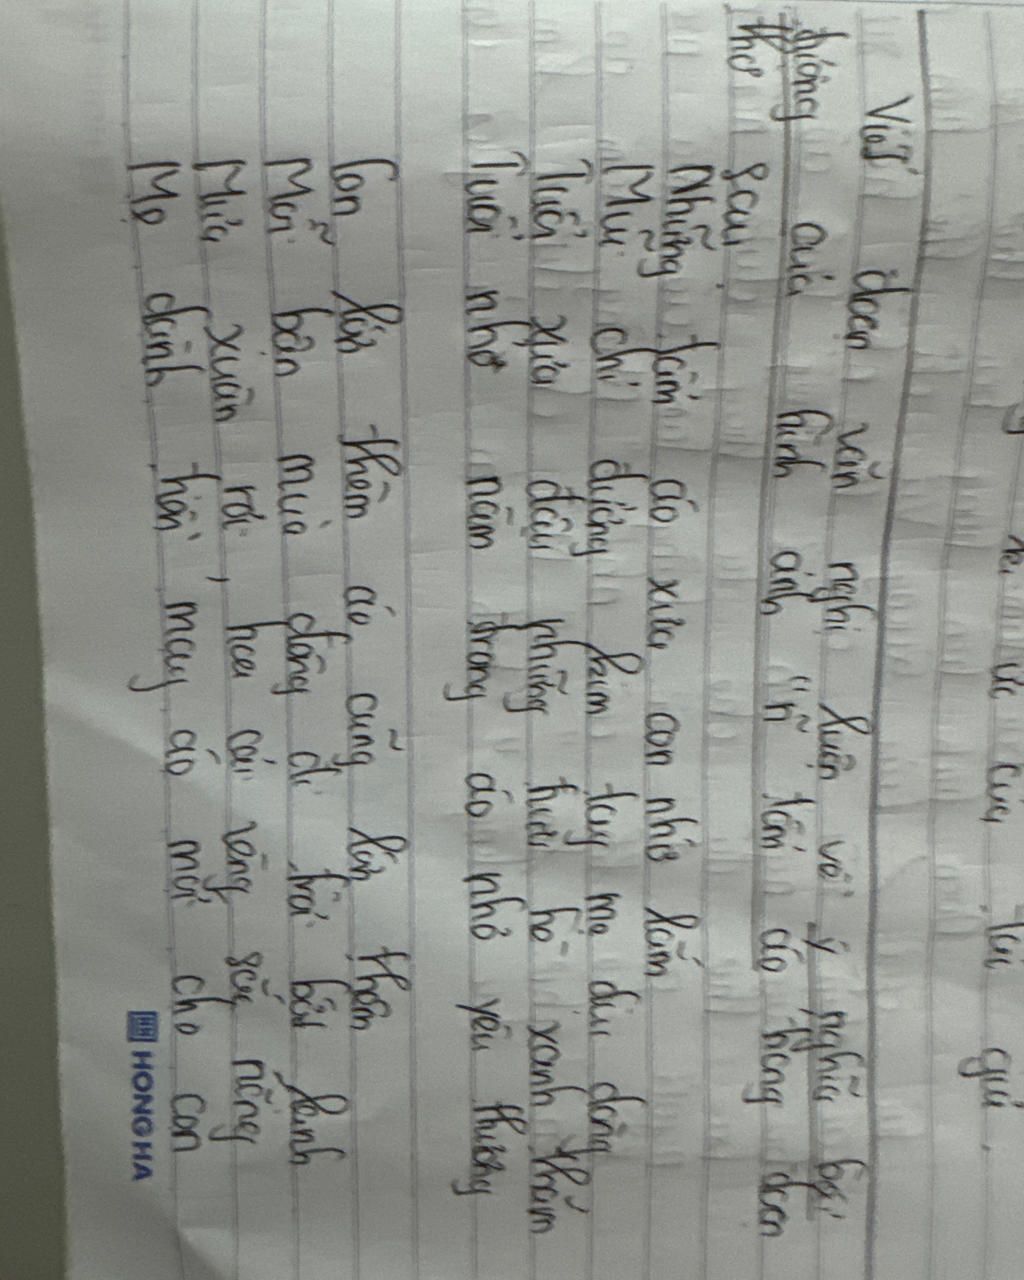 từ ức của tôi quá.
Viết đoạn văn nghị luận về ý nghĩa bài
tượng của hình ảnh "n~ tấm áo" trong đoạn
thơ sau
Những tấm áo xưa con nhớ lắm
Mũi chỉ đường kim tay mẹ dịu dàng
Tuổi xưa đâu những thưa hồ xanh thắm
Tuổi nhỏ nằm trong áo nhỏ yêu thương
Con lớn thêm áo cũng lớn thêm
Mỗi bận mùa đông đi trời bớt lạnh
Mùa xuân tới, hoa cải vàng sắc nắng
Mẹ dành hồi may áo mới cho con
HONG HA